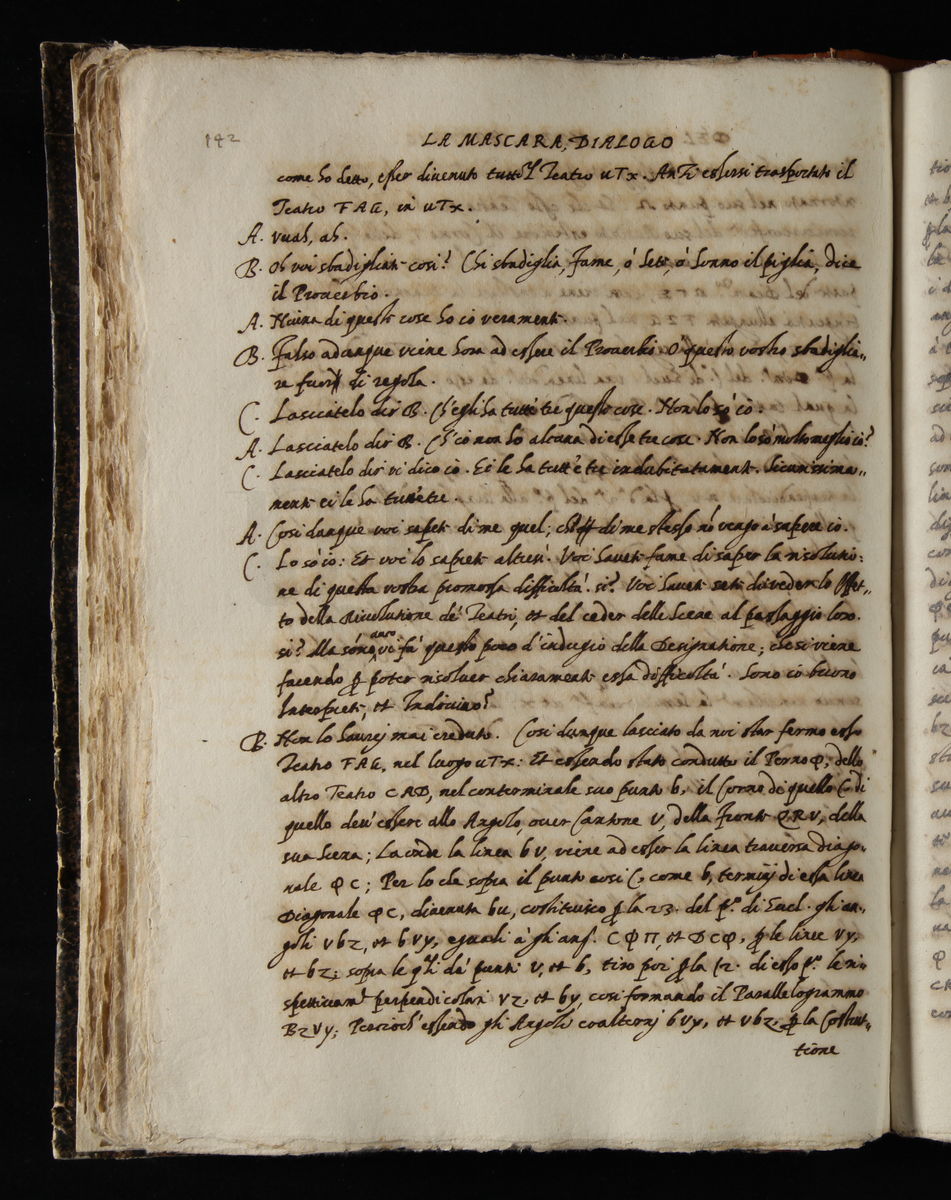 142
LA MASCARA, DIALOGO
come ho detto, esser divenuto tutto'l Teatro uTx. Anzi essersi trasportato il
Teatro FAG, in uTx.
A. vuah, ah.
B. Oh voi sbadigliate cosi? Chi sbadiglia, fame, ò sete, ò sonno il piglia, dice
il Proverbio.
A. Niuna di queste cose ho io veramente.
B. Falso adunque viene hora ad essere il Proverbio. O' questo vostro sbadiglia„
re fuori di regola.
C. Lasciatelo dir B. Ch'egli ha tutt'e tre queste cose. Non lo sò io.
A. Lasciatelo dir B. Ch'io non hò alcuna di esse tre cose. Non lo sò molto meglio io?
C. Lasciatelo dir vi dico io. Ei le ha tutt'e tre indubitatamente. Sicurissima„
mente ei le ha tutt'e tre.
A. Cosi dunque voi sapete di me quel; che di me stesso nò vengo à sapere io.
C. Lo sò io: Et voi lo sapete altresi. Voi havete fame di saper la risolutio„
ne di questa vostra promossa difficultà. si? Voi havete sete di veder lo effet„
to della Rivolutione de' Teatri, et del ceder delle Scene al passaggio loro.
si? Ma sonno anco vi fà questo poco d'indugio della Designatione; che si viene
facendo p poter risolver chiaramente essa difficoltà. Sono io buono
Interprete, et Indovino?
B. Non lo havrej mai creduto. Cosi dunque lasciato da noi star fermo esso
Teatro FAG, nel luogo uTx: Et essendo stato condutto il Perno φ, dello
altro Teatro CAD, nel conterminale suo punto b, il Corno di quello C, di
quello dev'essere allo Angolo, over Cantone V, della fronte QRV, della
sua Scena; La onde la linea bV, viene ad esser la linea traversa diago„
nale φC; Per lo che sopra il punto cosi C, come b, terminj di essa linea
Diagonale φC, divenuta bu, costituisco p la 23. del p.º di Eucl. gli an„
goli Vbz, et bVy, eguali à gli ang. CφΠ, et DCφ, p le linee Vy,
et bz; sopra le qli da' punti V, et b, tiro poi p la 12. di esso p.º le ri„
spettivam.e perpendicolari Vz, et by, cosi formando il Parallelogrammo
BzVy; Percioch'essendo gli Angoli coalternj bVy, et Vbz, p la Costitu„
tione